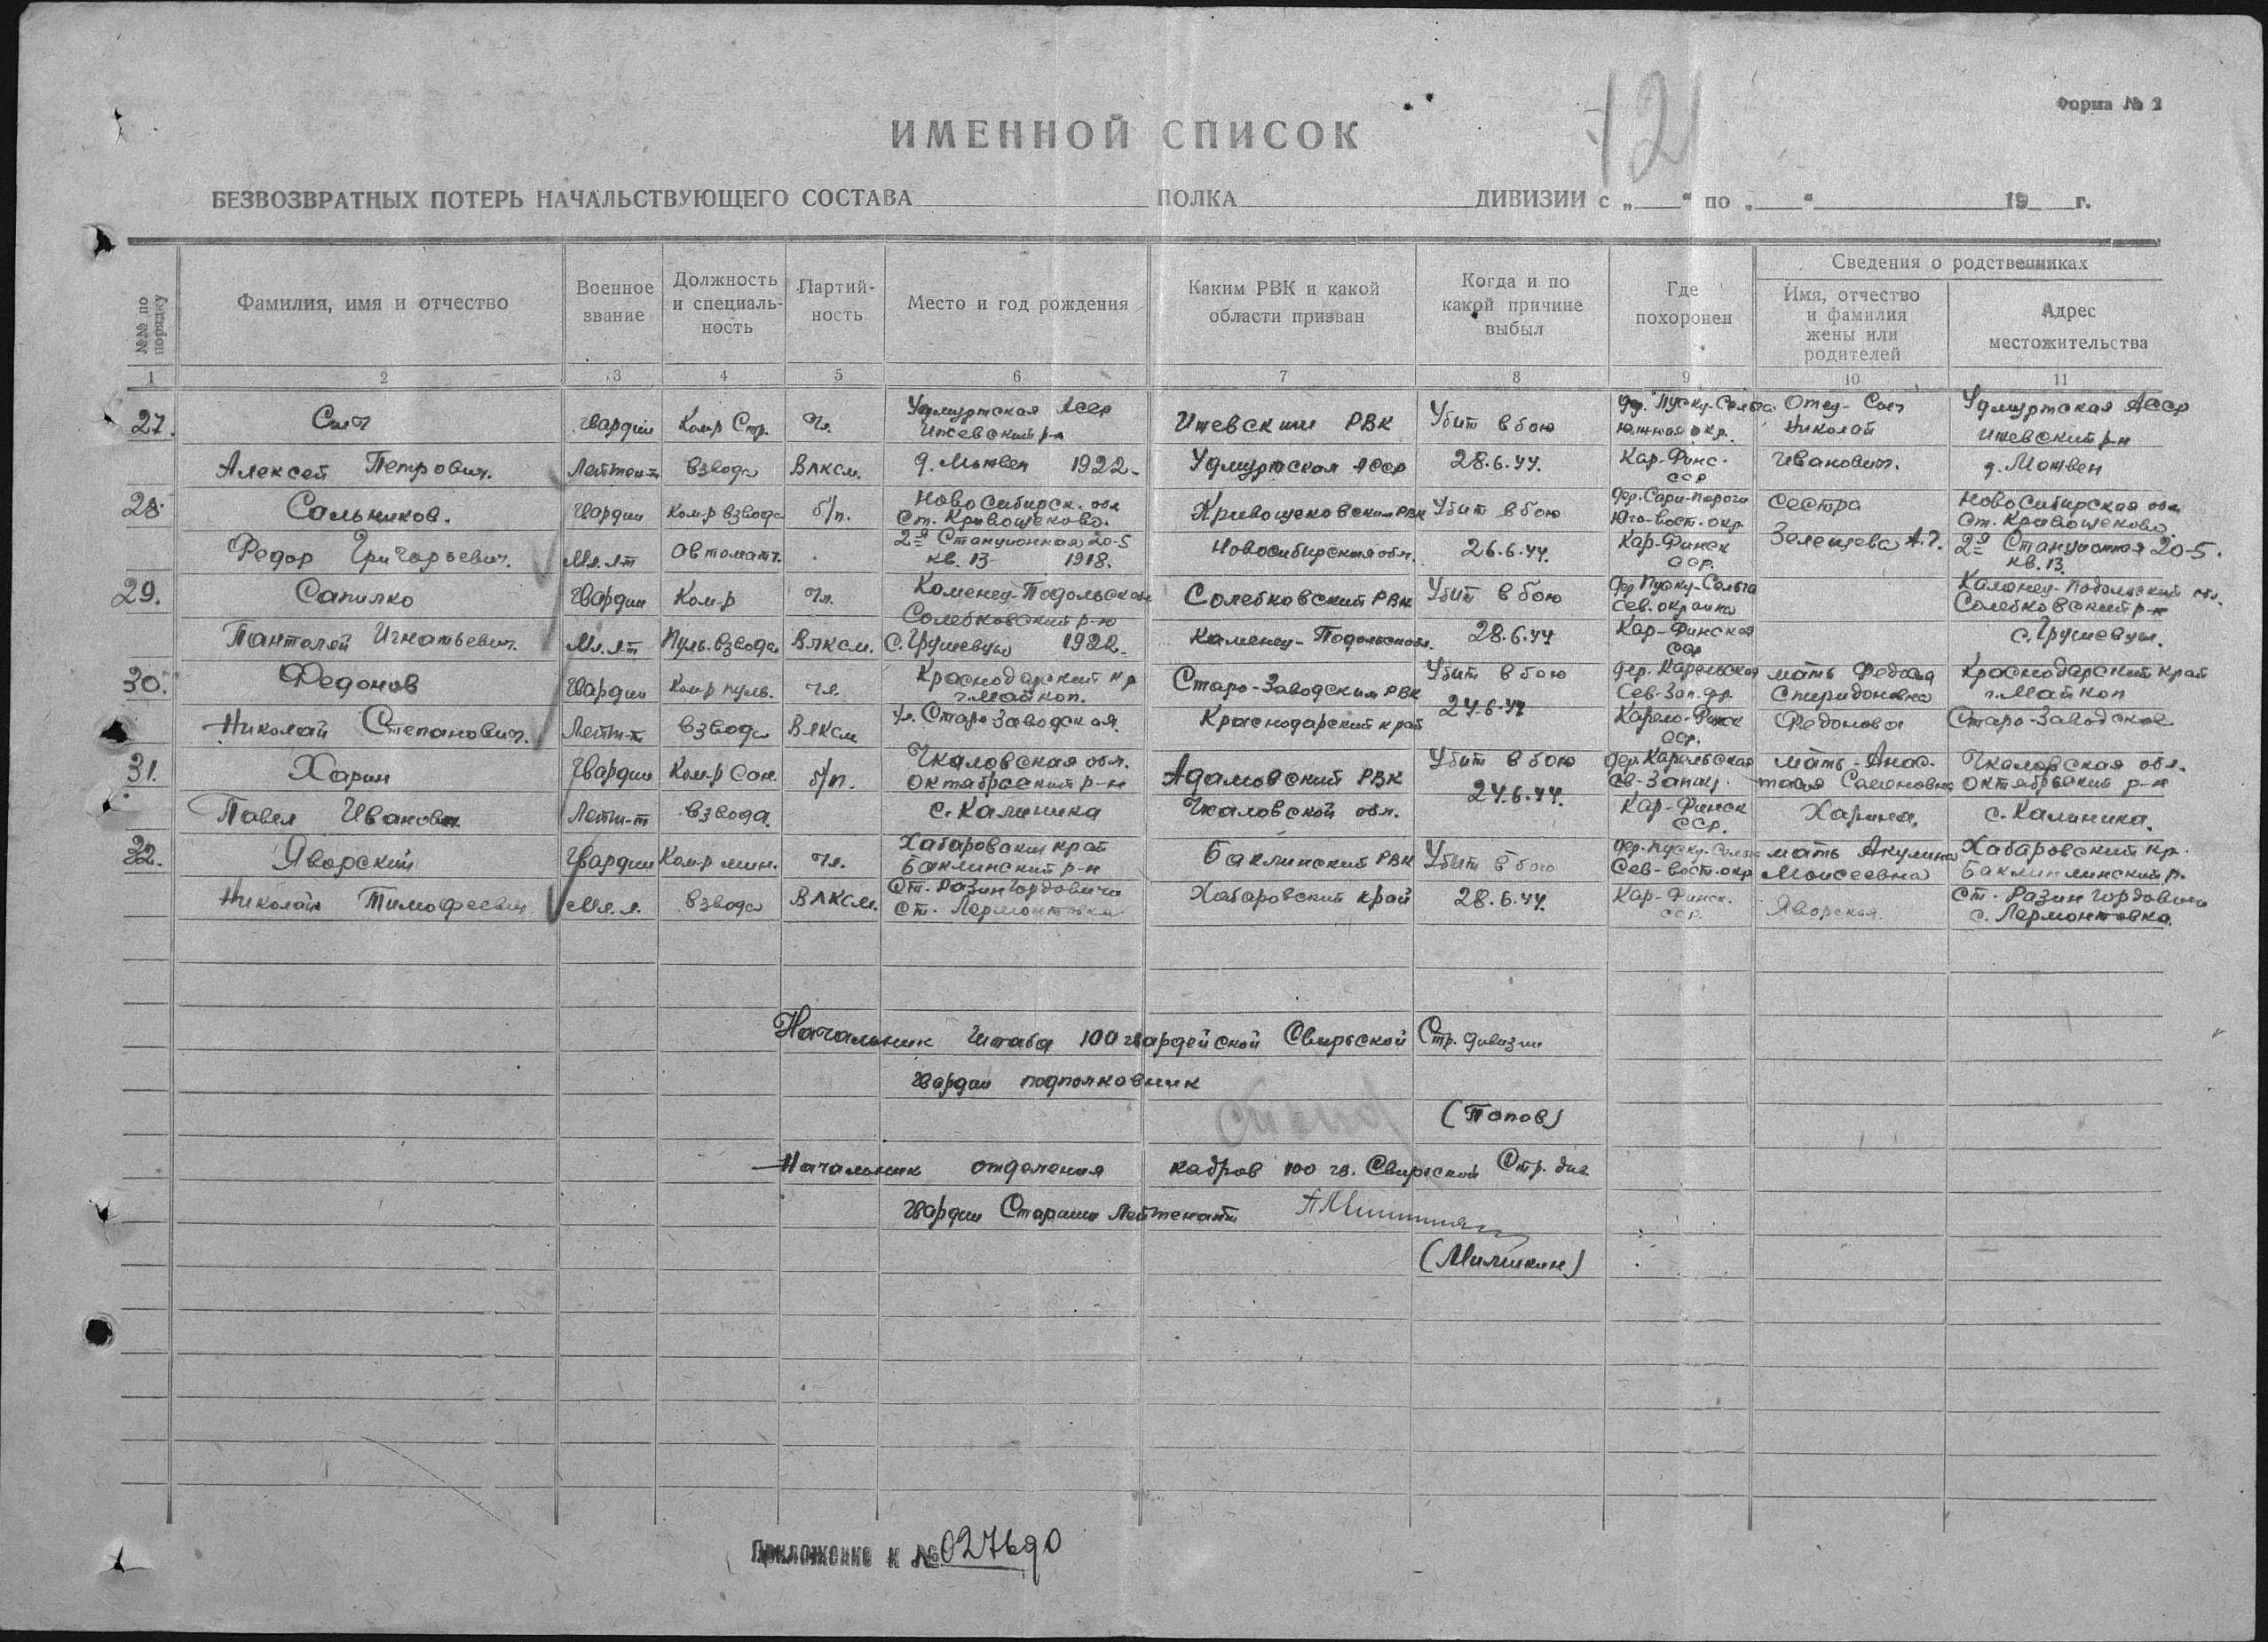 Форма № 2
12
ИМЕННОЙ СПИСОК
БЕЗВОЗВРАТНЫХ ПОТЕРЬ НАЧАЛЬСТВУЮЩЕГО СОСТАВА ПОЛКА ДИВИЗИИ с „ “ по „ “ 19 г.
№№ по порядку
Фамилия, имя и отчество
Военное звание
Должность и специальность
Партийность
Место и год рождения
Каким РВК и какой области призван
Когда и по какой причине выбыл
Где похоронен
Сведения о родственниках
Имя, отчество и фамилия жены или родителей
Адрес местожительства
1 2 3 4 5 6 7 8 9 10 11
27. Гвардии Ком-р Стр. Чл. Удмуртская Асср Ижевский р-н Ижевским РВК Убит в бою Южная окр. Отец Николай Удмуртская Асср Ижевский р-н
Алексей Петрович. Лейтен-т Взвода Влксм. 1922 Удмуртская Асср 28.6.44. Кар-Финс. сср Иванович.
28 Сальников. Гвардии Ком-р взвода б/п. Новосибирск. обл ст. Кривощеково. Кривощековским РВК Убит в бою Юго-вост. окр. сестра Новосибирская обл ст. Кривощеково
Федор Григорьевич. Мл. л-т Автоматч. 2я Станционная 20-5 кв. 13 1918. Новосибирская обл. 26.6.44. Кар-Финск сср. А.Г. 2я Станционная 20-5. кв. 13.
29. Сапилко Гвардии Ком-р Чл. Каменец-Подольск обл Солобковский р-н Солобковский РВК Убит в бою Сев. окраина Каменец-Подольский обл. Солобковский р-н
Пантелей Игнатьевич. Мл. л-т Пуль. взвода Влксм. 1922 Каменец-Подольск обл. 28.6.44 Кар-Финская сср
30. Федонов Гвардии Ком-р пуль. чл. Краснодарский кр г. Майкоп. Старо-Заводским РВК Убит в бою дер. Карельская мать Спиридоновна Краснодарский край г. Майкоп
Николай Степанович. Лейт-т взвода Влксм ул. Старо Заводская. Краснодарский край 24.6.44 Карело-Финск сср. Федонова Старо-Заводская
31. Харин Гвардии Ком-р Сап. б/п. Чкаловская обл. Октябрьский р-н Адамовский РВК Убит в бою дер. Карельская мать-Анас- тасия Семеновна Чкаловская обл. Октябрьский р-н
Павел Иванович Лейт-т взвода. с. Калиника Чкаловской обл. 24.6.44. Кар-Финск сср. Харина. с. Калиника.
32. Яворский Гвардии Ком-р мин. Чл. Хабаровский край Убит в бою Сев-вост. окр мать Акулина Моисеевна Хабаровский кр.
Николай Тимофеевич Мл. л. взвода Влксм. ст. Лермонтовка Хабаровский край 28.6.44. Кар-Финск. сср. Яворская. с. Лермонтовка.
Начальник Штаба 100 гвардейской Свирьской Стр. дивизии
Гвардии подполковник
(Попов)
Начальник отделения кадров 100 гв. Свирьской Стр. див
Гвардии Старший Лейтенант
(Милишкин)
Приложение к № 027690